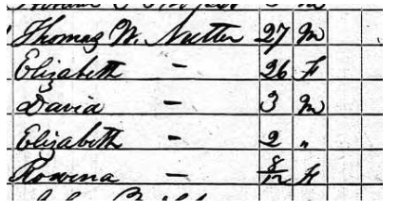 Thomas W. Nutter 27 M
Elizabeth - 26 F
David - 3 M
Elizabeth - 2 "
Rowena - 8/12 F